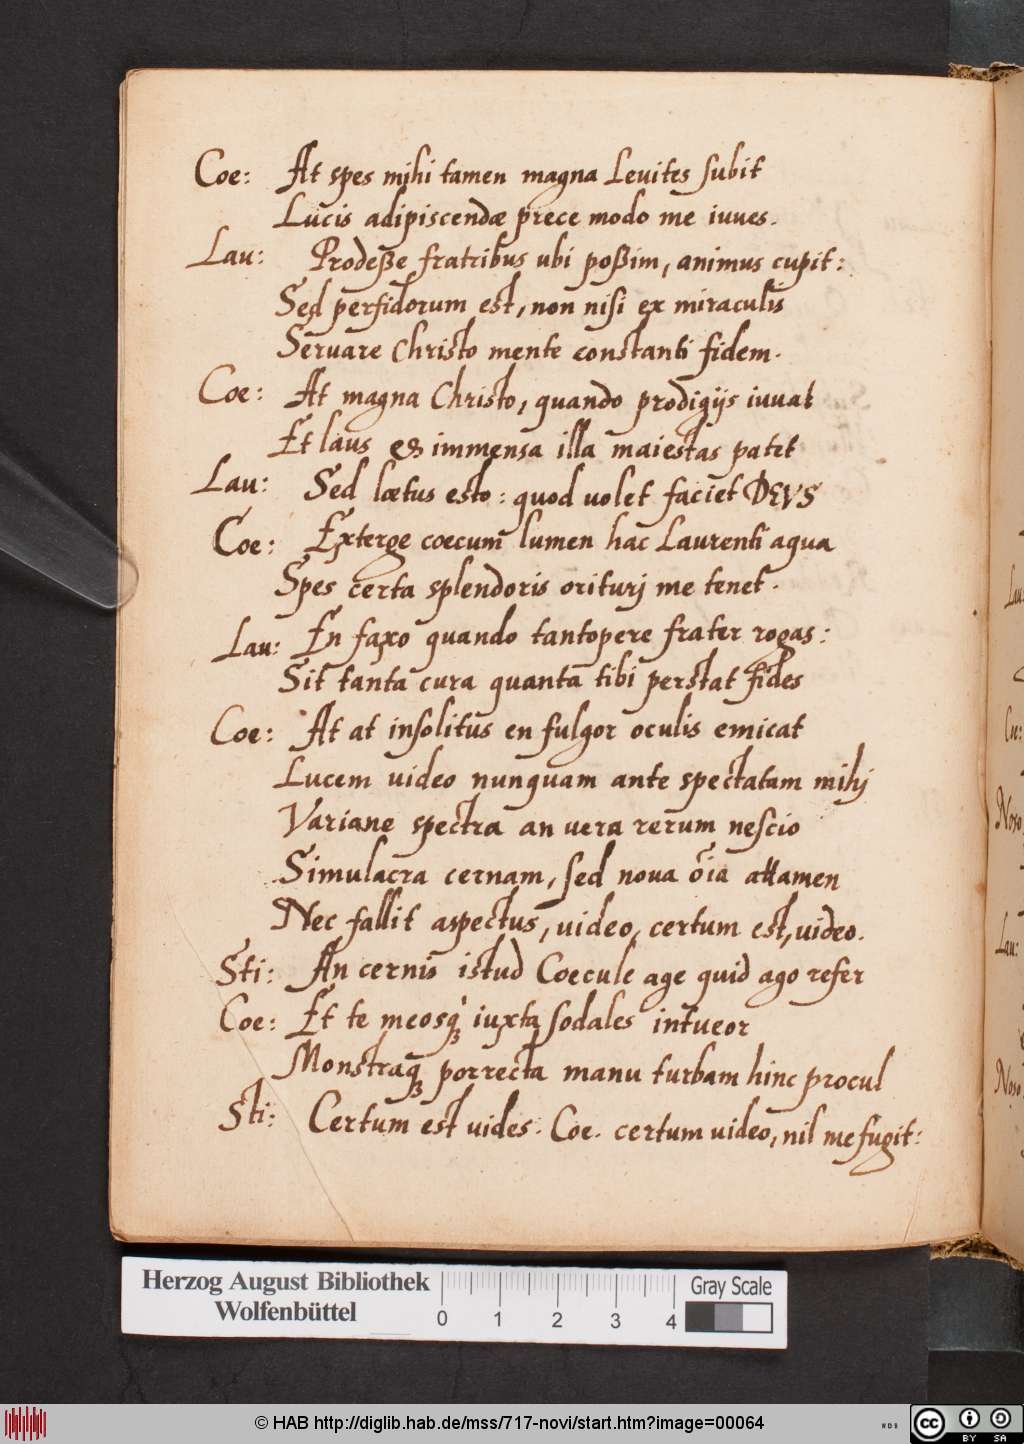 Coe: At spes mihi tamen magna Leuites subit
Lucis adipiscendæ prece modo me iuues.
Lau: Prodeße fratribus ubi poßim, animus cupit:
Sed perfidorum est, non nisi ex miraculis
Seruare Christo mente constanti fidem.
Coe: At magna Christo, quando prodigijs iuuat
Et laus et immensa illa maiestas patet
Lau: Sed lætus esto: quod uolet faciet DEVS
Coe: Exterge coecum lumen hac Laurenti aqua
Spes certa splendoris orituri me tenet.
Lau: En faxo quando tantopere frater rogas:
Sit tanta cura quanta tibi perstat fides
Coe: At at insolitus en fulgor oculis emicat
Lucem uideo nunquam ante spectatam mihi
Variane spectra an uera rerum nescio
Simulacra cernam, sed noua oīa attamen
Nec fallit aspectus, uideo, certum est, uideo.
Sti: An cernis istud Coecule age quid ago refer
Coe: Et te meosq́ꝫ iuxta sodales intueor
Monstraqꝫ porrecta manu turbam hinc procul
Sti: Certum est uides. Coe. certum uideo, nil me fugit:
Lau:
Coe:
Noso
Lau:
Noso
Herzog August Bibliothek
Wolfenbüttel
0 1 2 3 4
Gray Scale
© HAB http://diglib.hab.de/mss/717-novi/start.htm?image=00064
WDB
cc BY SA